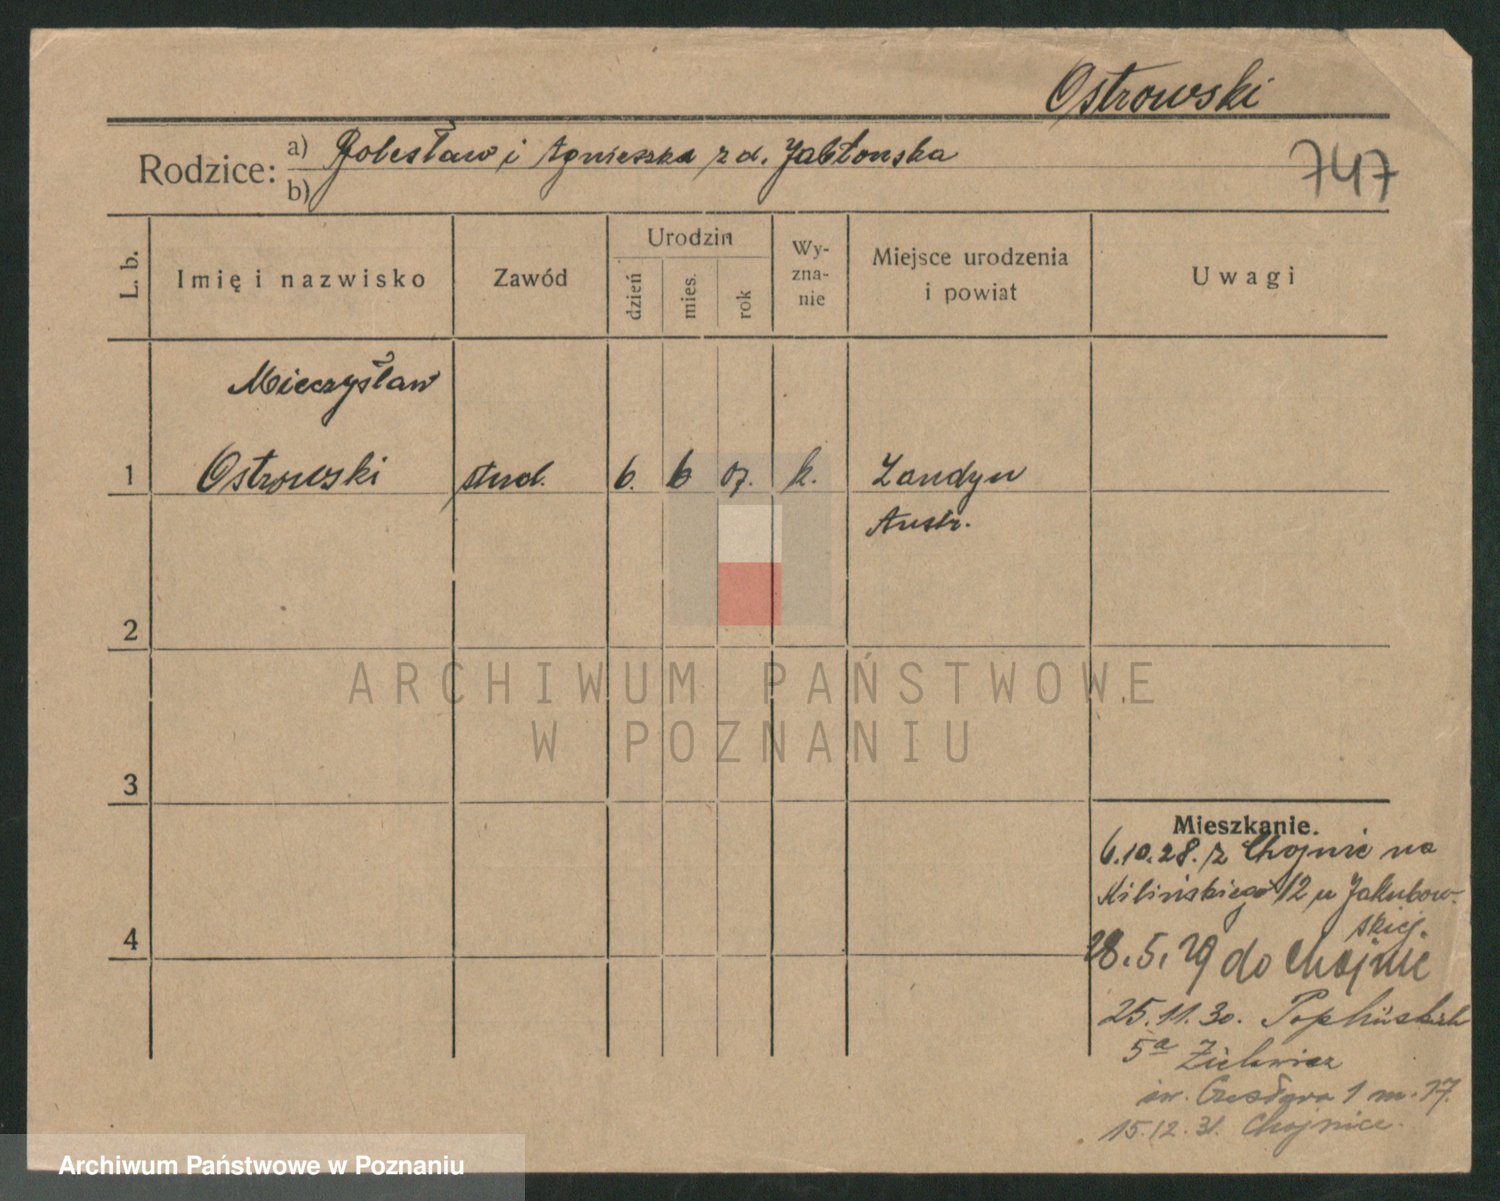 Ostrowski
Rodzice: a) Bolesław i Agnieszka z d. Jabłonska
b)
747
L. b.
Imię i nazwisko
Zawód
Urodzin
dzień
mies.
rok
Wy-
zna-
nie
Miejsce urodzenia
i powiat
Uwagi
Mieczysław
1 Ostrowski stud. 6. 6 07. k. Zandyn
Austr.
2
ARCHIWUM PAŃSTWOWE
W POZNANIU
3
Mieszkanie.
6.10.28. z Chojnic na
Kilińskiego 12 u Jakubow-
skiej.
4
28.5.29 do Chojnic
25.11.30.
5a
św. Czesława 1 m. 17.
15.12.31. Chojnice.
Archiwum Państwowe w Poznaniu